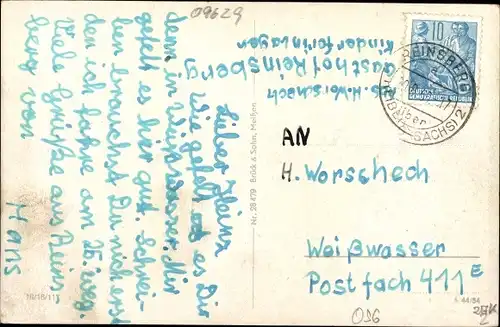 09629
Lieber Heinz
Wie gefällt es Dir
denn in Weißwasser. Mir
gefällt es hier gut. Schrei-
ben brauchst Du nicht erst
denn ich fahre am 25. weg.
Viele Grüße aus Reins-
berg von
Hans
H. Worschech
Gasthof Reinsberg
Kinderferienlager
10
DEUTSCHE
DEMOKRATISCHE REPUBLIK
REINSBERG
über
(SACHS) 2
AN
H. Worschech
Weißwasser
Postfach 411E
Nr. 28479 Brück & Sohn, Meißen
10/18/111
A 44/54
OSG